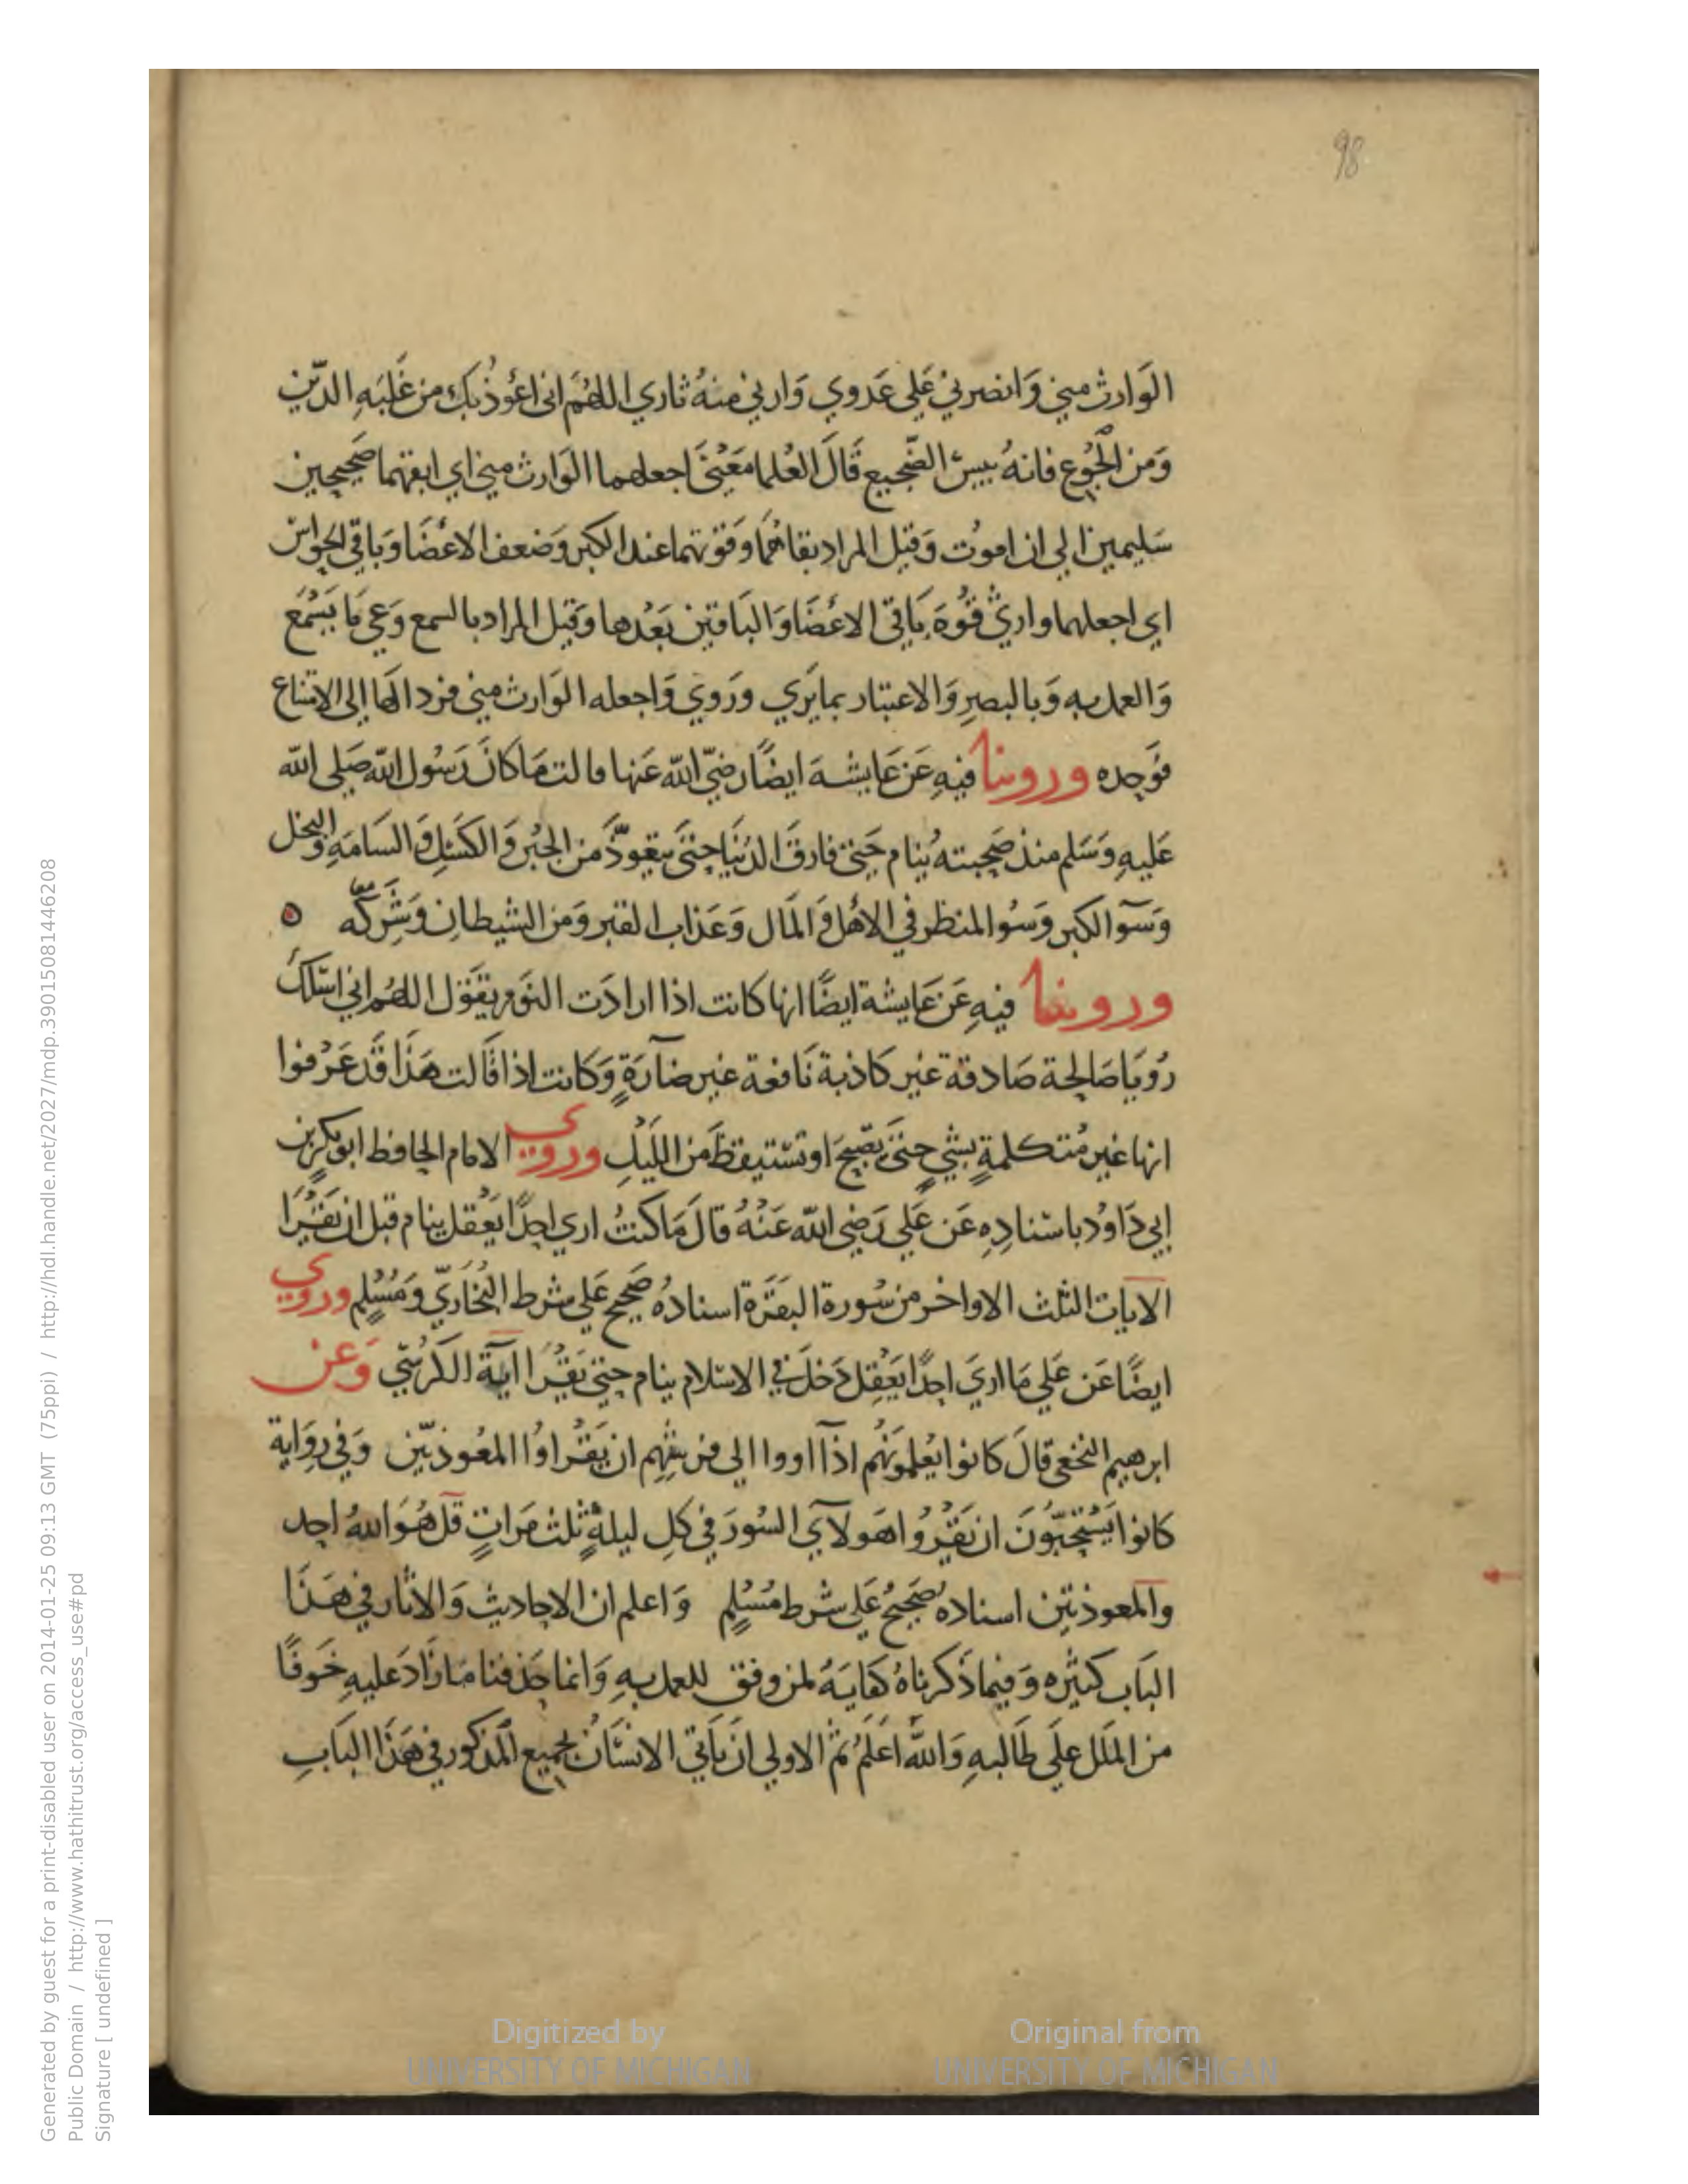 98
الوَارث مني وَانصرني عَلي عَدوي وَارني منهُ ثاري اللهُمَ اني اعُوذُ بك من غَلبَه الدّين
وَمن الجُوع فانهُ بيس الضّجيع قَالَ العُلما مَعْنىَ اجعلهما الوَارث مني اي ابقهما صَحيحين
سَليمين الي ان اموُت وَقيل المراد بقاهُمَا وَقوتهما عند الكبر وَضعف الاعضَا وَباقي الحوَاسّ
اي اجعلهما وارثي قُوةَ بَاقي الاعْضَا وَالبَاقين بَعْدها وَقيل المراد بالسمع وَعي مَا يَسْمَع
وَالعمل به وَبالبصرِ وَالاعتبار بما يَري وَرَوي وَاجعله الوَارث مني فرد الهَا الى الامتاع
فوَحده وروينا فيهِ عَن عَايشه ايضًا رضيّ اللّه عَنها قالت مَا كانَ رَسُول اللّه صَلى اللّه
عَليهِ وَسَلم منذ صَحبته يُنام حَتى فارقَ الدُنيَا حتىَ يتعوذَّ منَ الجبُن وَالكَسَلِ وَالسَامَةِ وَالبخل
وَسَوٓ الكبر وَسُو المنظر في الاهْل وَالمَال وَعَذاب القبر وَمن الشيطانِ وَشَركّه ه
وروينا فيهِ عَن عَايشة ايضًا انها كانت اذا ارادَت النوَم تقوَل اللهُم اني اسَلكَ
رُويَا صَالحة صَادقة غير كاذبة نَافعة غير ضآرَةٍ وَكانت اذا قَالت هَذَا قَد عَرَفوا
انها غير مُتكلمةٍ بشيٍ حتىَ تصْبحَ او تسْتيقظَ منَ اللَيْلِ وروي الامام الحافظ ابو بكرٍ بن
ابي دَاوُد باسْنادِهِ عَن عَلي رَضي اللّه عَنْهُ قالَ مَا كنتُ اري احدًا يَعْقل ينام قبل ان يَقْرَا
الايات الثلث الاواخر من سُورة البقَرَة اسنادهُ صَحيح عَلي شرط البُخَاريّ وَمُسْلِم وروي
ايضًا عَن عَلي مَا اريَ احدًا يَعْقِل دَخلَ في الاسْلام ينام حتي يَقْرَا ايَة الكرُسّي وَعن
ابرهيم النخعي قالَ كانوا يُعلموُنَهُم اذآ اووا الي فرشهِم ان يَقْراوُا المعُوذتيّن وَفي روَاية
كانوا يَسْتحبّوُنَ ان يَقْرُوا هَولآيِ السُورَ في كلِ ليلةٍ ثلث مَراتٍ قل هُوَ اللّهُ احد
والمعوذتين اسناده صَحيحُ عَلي شرط مُسْلِمٍ وَاعلم ان الاحاديث وَالاثار في هَذَا
البَاب كثيَره وَفيما ذَكرناهُ كفايَهُ لمن وفق للعمل بهِ وَانما حَذفنا مَا زَادَ عليهِ خَوفًا
من المَلل عَلَي طَالبهِ وَاللّهُ اعَلمُ ثمّ الاولي انَ يَاتيَ الانسَانُ بجميع المذكور في هَذَا البَابِ
Generated by guest for a print-disabled user on 2014-01-25 09:13 GMT (75ppi) / http://hdl.handle.net/2027/mdp.39015081446208
Public Domain / http://www.hathitrust.org/access_use#pd
Signature [ undefined ]
Digitized by
UNIVERSITY OF MICHIGAN
Original from
UNIVERSITY OF MICHIGAN